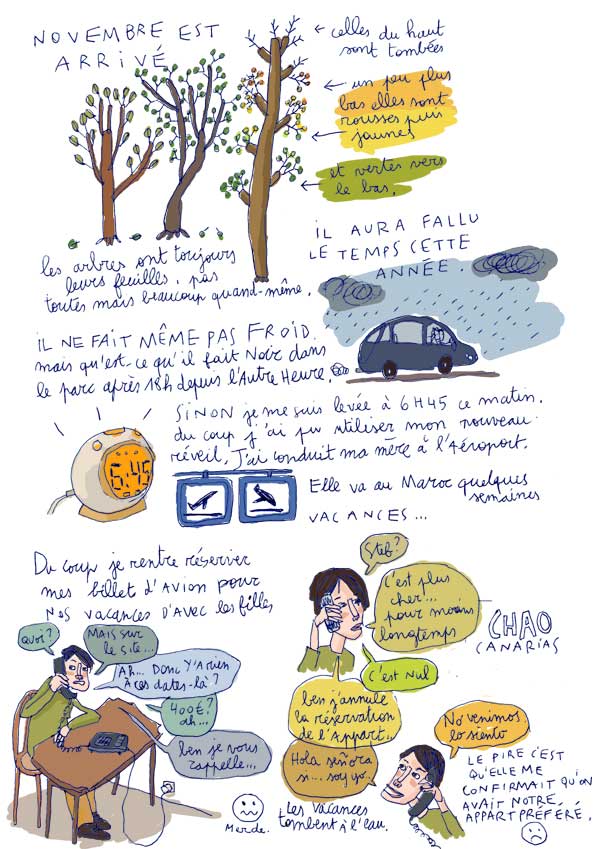 NOVEMBRE EST
ARRIVÉ
celles du haut
sont tombées
un peu plus
bas elles sont
rousses puis
jaunes
et vertes vers
le bas.
les arbres ont toujours
leurs feuilles. pas
toutes mais beaucoup quand-même.
iL AURA FALLU
LE TEMPS CETTE
ANNÉE.
iL NE FAIT MÊME PAS FROID
mais qu'est-ce qu'il fait Noir dans
le parc après 18h depuis l'Autre Heure.
SiNON je me suis levée à 6H45 ce matin.
du coup j'ai pu utiliser mon nouveau
réveil. J'ai conduit ma mère à l'Aéroport.
6:45
Elle va au Maroc quelques
semaines
VACANCES...
Du coup je rentre réserver
mes billet d'Avion pour
NOS VACANCES D'AVEC les filles
Quoi?
MAIS SUR
le site...
Ah... Donc Y'A rien
à ces dates-là?
400€?
ah...
ben je vous
rappelle...
Merde.
Stef?
C'est plus
cher...
pour moins
longtemps
CHAO
CANARIAS
C'est Nul.
ben j'annule
la réservation
de l'Appart.
Hola señora
si... soy yo.
les vacances
tombent à l'eau.
No venimos
lo siento
LE PIRE C'EST
QU'ELLE ME
CONFIRMAIT QU'ON
AVAIT NOTRE
APPART PRÉFÉRÉ.